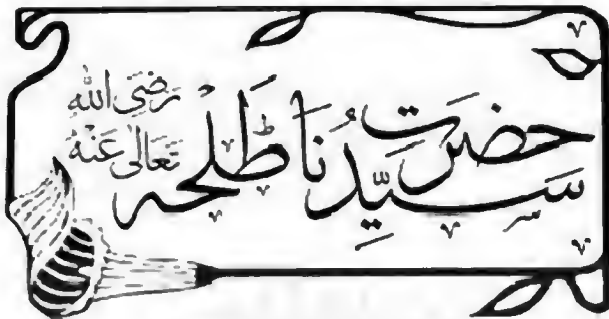 حضرت سیِّدُنا طَلْحہ رَضِیَ اللّٰہُ تَعَالٰی عَنْہُ